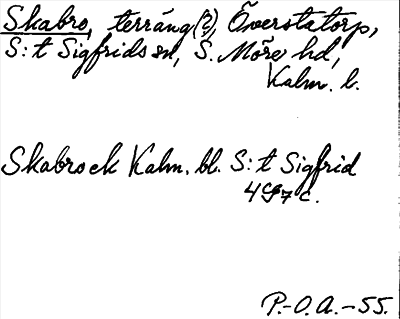 Skabro, terräng(?), Överstatorp,
S:t Sigfrids sn, S. Möre hd,
Kalm. l.
Skabroek Kalm. bl. S:t Sigfrid
P.-O.A.-55.